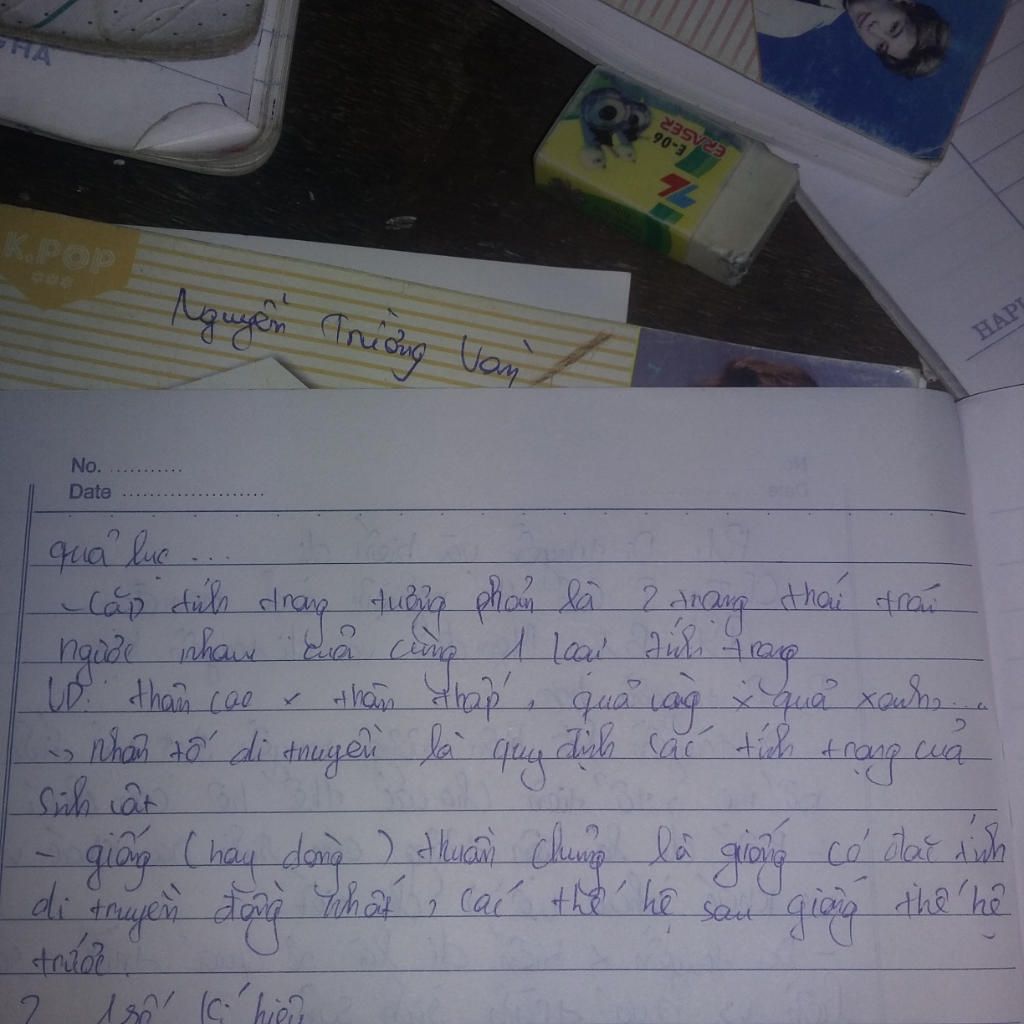 CHA
E-06
ERASER
K.POP
Nguyễn Trường Van
HAPP
No. ...........
Date .....................
quả lục ...
- Cặp tính trạng tương phản là 2 trạng thái trái
ngược nhau của cùng 1 loại tính trạng
VD: thân cao x thân thấp, quả vàng x quả xanh, ...
-> nhân tố di truyền là quy định các tính trạng của
sinh vật
- giống (hay dòng) thuần chủng là giống có đặc tính
di truyền đồng nhất, các thế hệ sau giống thế hệ
trước
2 1 số kí hiệu